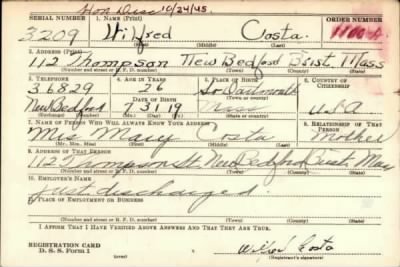 Hon Disc 10/24/45.
SERIAL NUMBER 1. NAME (Print) ORDER NUMBER
3209 Wilfred Costa. 1100 A
(First) (Middle) (Last)
2. ADDRESS (Print)
112 Thompson New Bedford Brist. Mass
(Number and street or R. F. D. number) (Town) (County) (State)
3. TELEPHONE 4. AGE IN YEARS 5. PLACE OF BIRTH 6. COUNTRY OF CITIZENSHIP
36829 26 So Dartmouth
DATE OF BIRTH (Town or county)
New Bedford 7/31/19 Mass USA
(Exchange) (Number) (Mo.) (Day) (Yr.) (State or country)
7. NAME OF PERSON WHO WILL ALWAYS KNOW YOUR ADDRESS 8. RELATIONSHIP OF THAT PERSON
Mrs Mary Costa Mother
(Mr. Mrs. Miss) (First) (Middle) (Last)
9. ADDRESS OF THAT PERSON
112 Thompson St. New Bedford Brist. Mass
(Number and street or R. F. D. number) (Town) (County) (State)
10. EMPLOYER'S NAME
Just discharged
11. PLACE OF EMPLOYMENT OR BUSINESS
(Number and street or R. F. D. number) (Town) (County) (State)
I AFFIRM THAT I HAVE VERIFIED ABOVE ANSWERS AND THAT THEY ARE TRUE.
REGISTRATION CARD
D. S. S. Form 1 Wilfred Costa
(Registrant's signature)